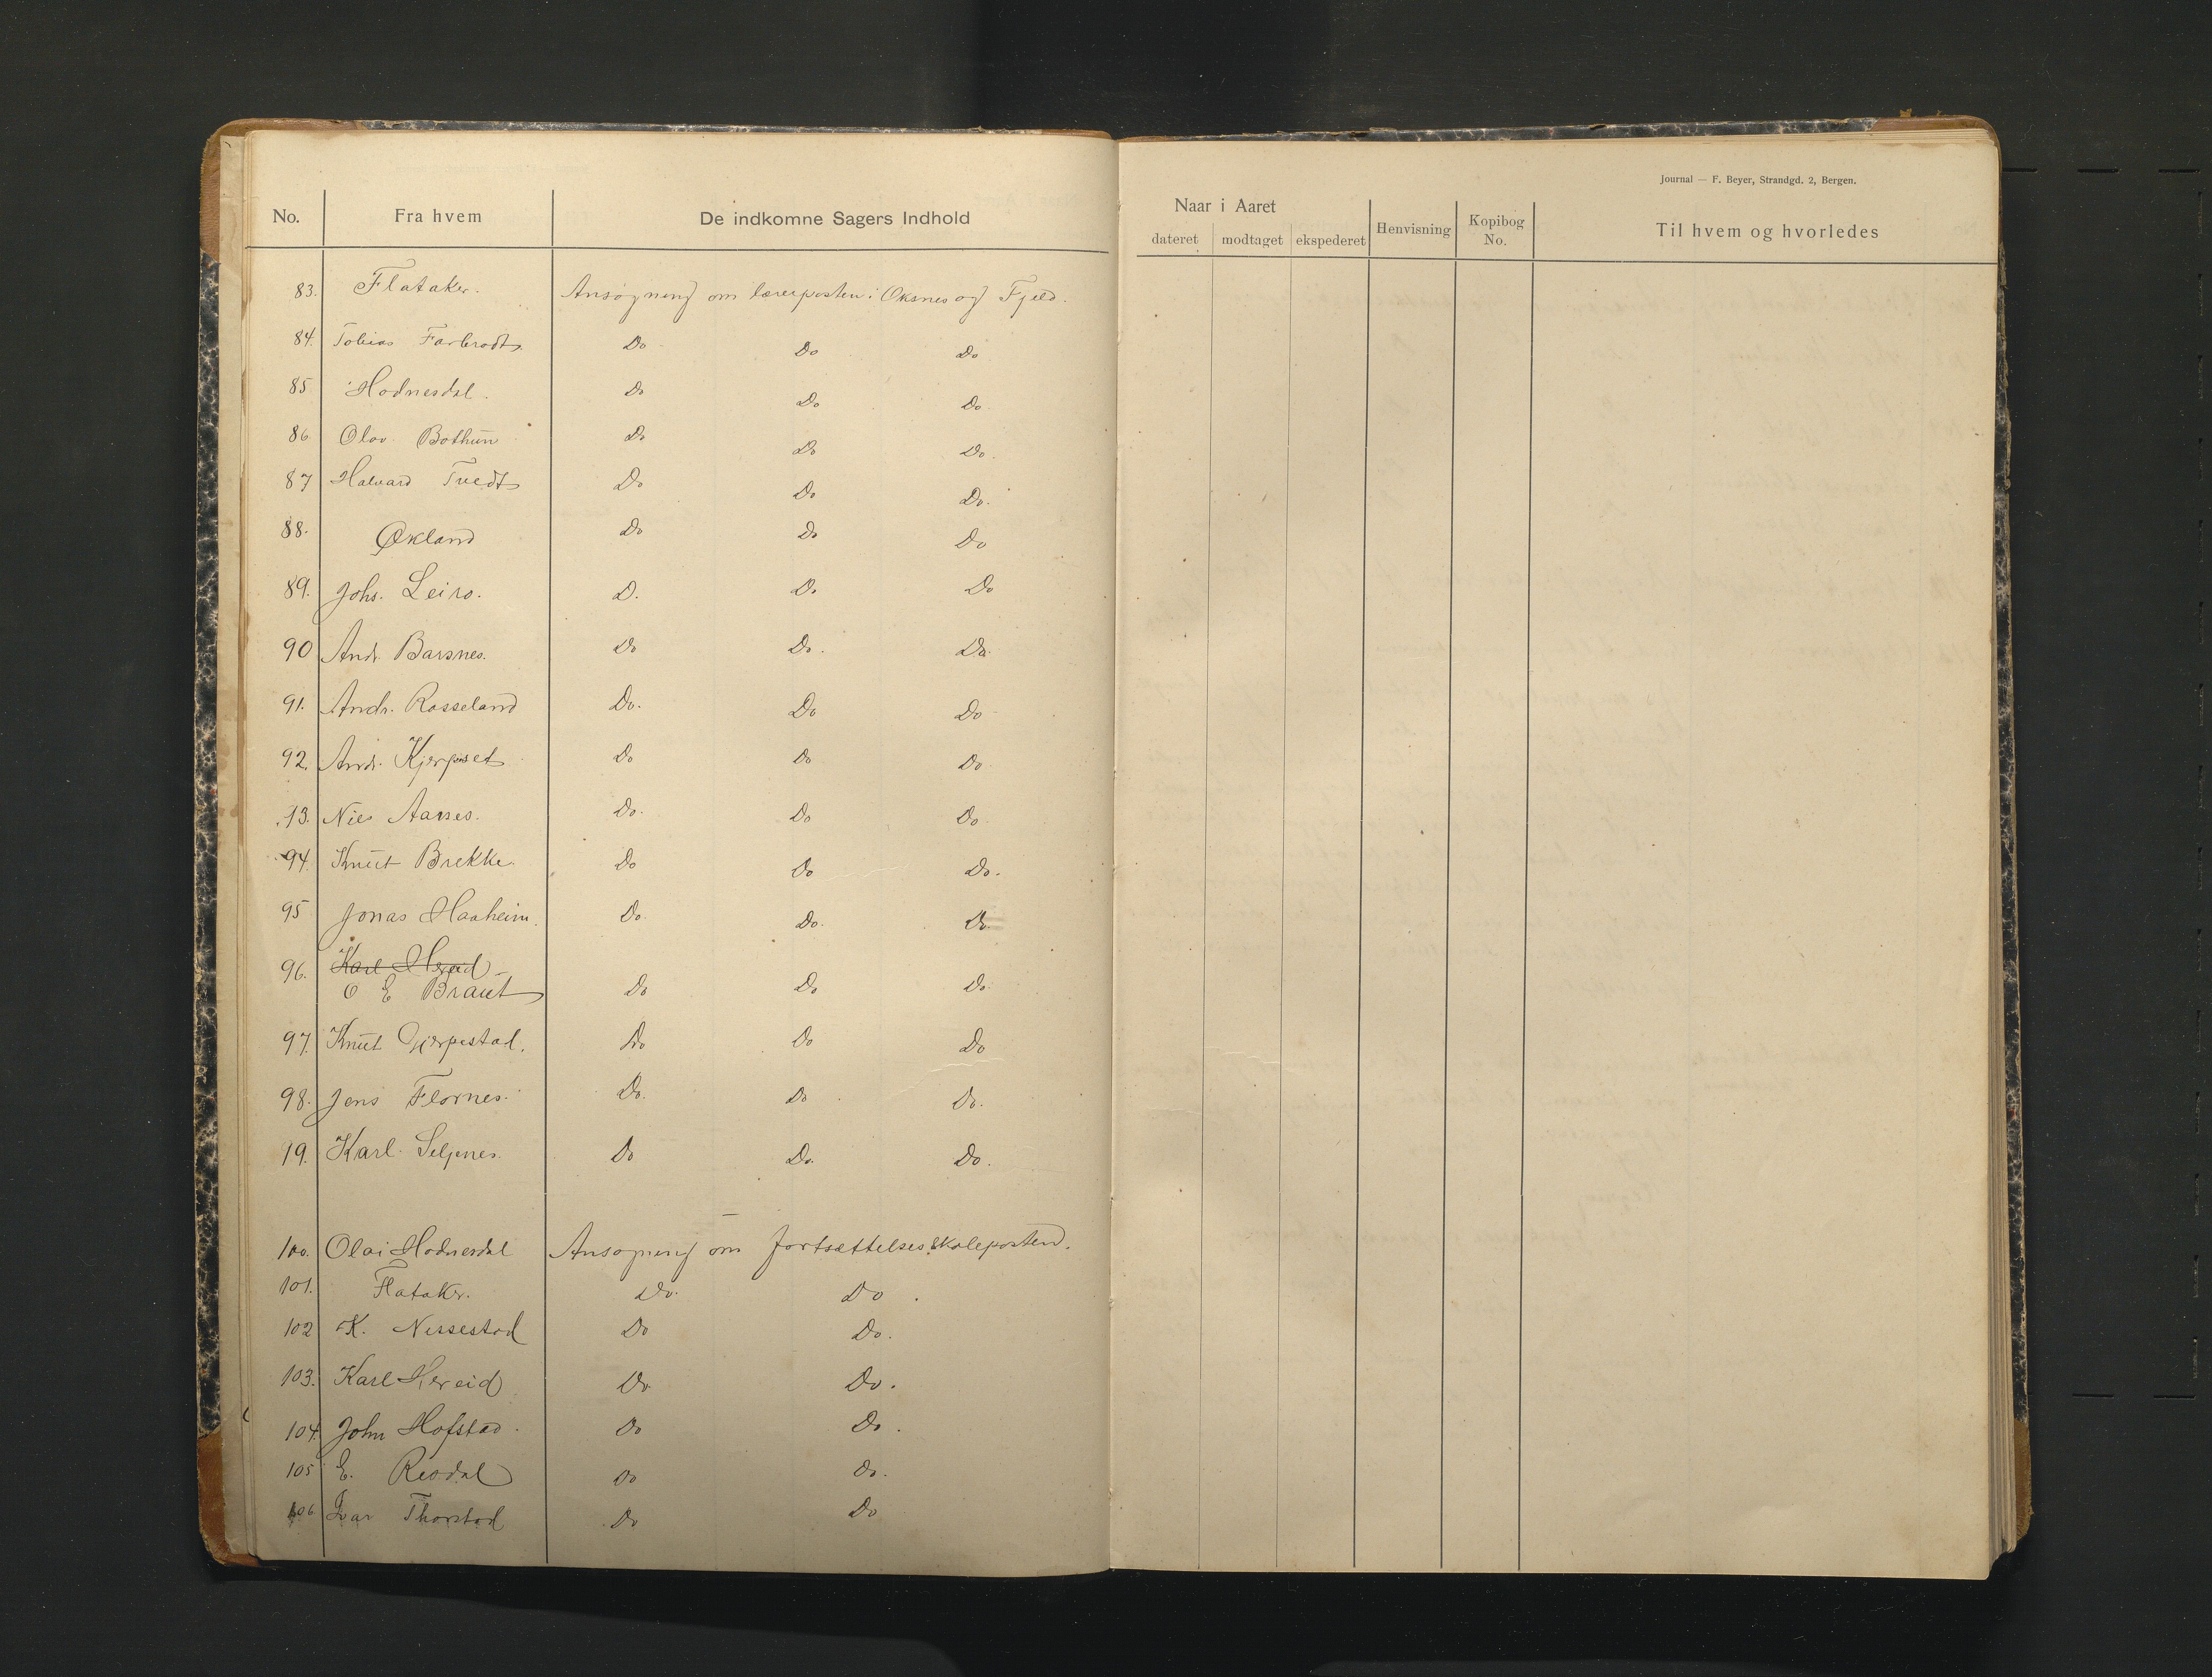 No. Fra hvem De indkomne Sagers Indhold
83. Flataker. Ansøgning om lærerposten i Oksnes og Fjeld.
84. Tobias Farbrodt. Do Do Do
85 Hodnesdal. Do Do Do
86 Olav Bothun Do Do Do.
87 Halvard Tvedt Do Do Do.
88. Økland Do Do Do
89. Johs. Leiro. D. Do Do
90 Andr. Barsnes. Do Do. Do
91. Andr. Rosseland Do. Do Do
92. Andr. Do Do Do
93. Nils Aarses. Do. Do Do
94. Knut Brekke Do Do Do.
95 Jonas Haaheim. Do Do. Do
96. Karl Hereid
O E Braut Do Do Do
97. Knut Gjerpestad. Do Do Do
98. Jens Flornes. Do. Do Do.
99. Karl Seljenes. Do Do. Do.
100. Olai Hodnesdal Ansøgning om fortsættelsesskoleposten.
101. Flataker. Do. Do.
102 K. Nessestad Do Do.
103. Karl Hereid Do Do.
104. John Hofstad. Do Do.
105 E. Resdal Do Do.
106 Ivar Thorstad Do Do
Journal — F. Beyer, Strandgd. 2, Bergen.
Naar i Aaret
dateret modtaget ekspederet Henvisning Kopibog No. Til hvem og hvorledes